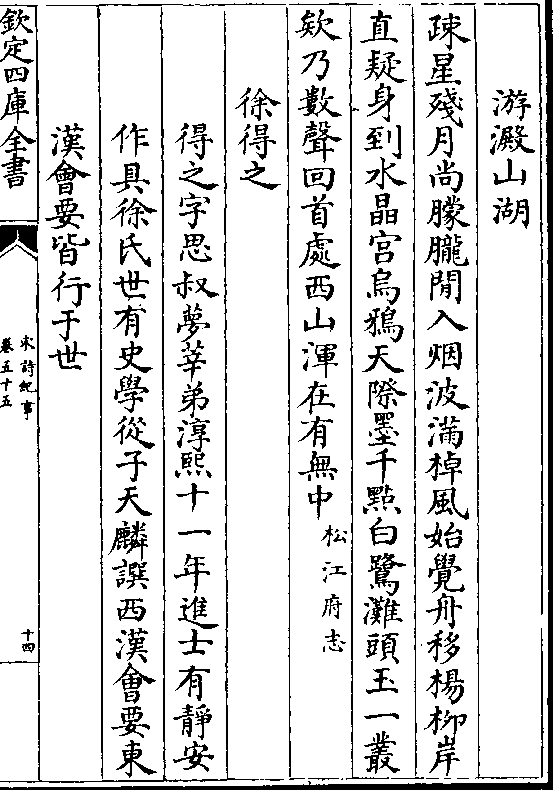 游澱山湖
疎星殘月尚朦朧閒入烟波滿棹風始覺舟移楊柳岸
直疑身到水晶宮烏鴉天際墨千點白鷺灘頭玉一叢
欸乃數聲回首處西山渾在有無中松江府志
徐得之
得之字思叔夢莘弟淳熙十一年進士有靜安
作具徐氏世有史學從子天麟譔西漢會要東
漢會要皆行于世
欽定四庫全書
宋詩紀事
卷五十五
十四